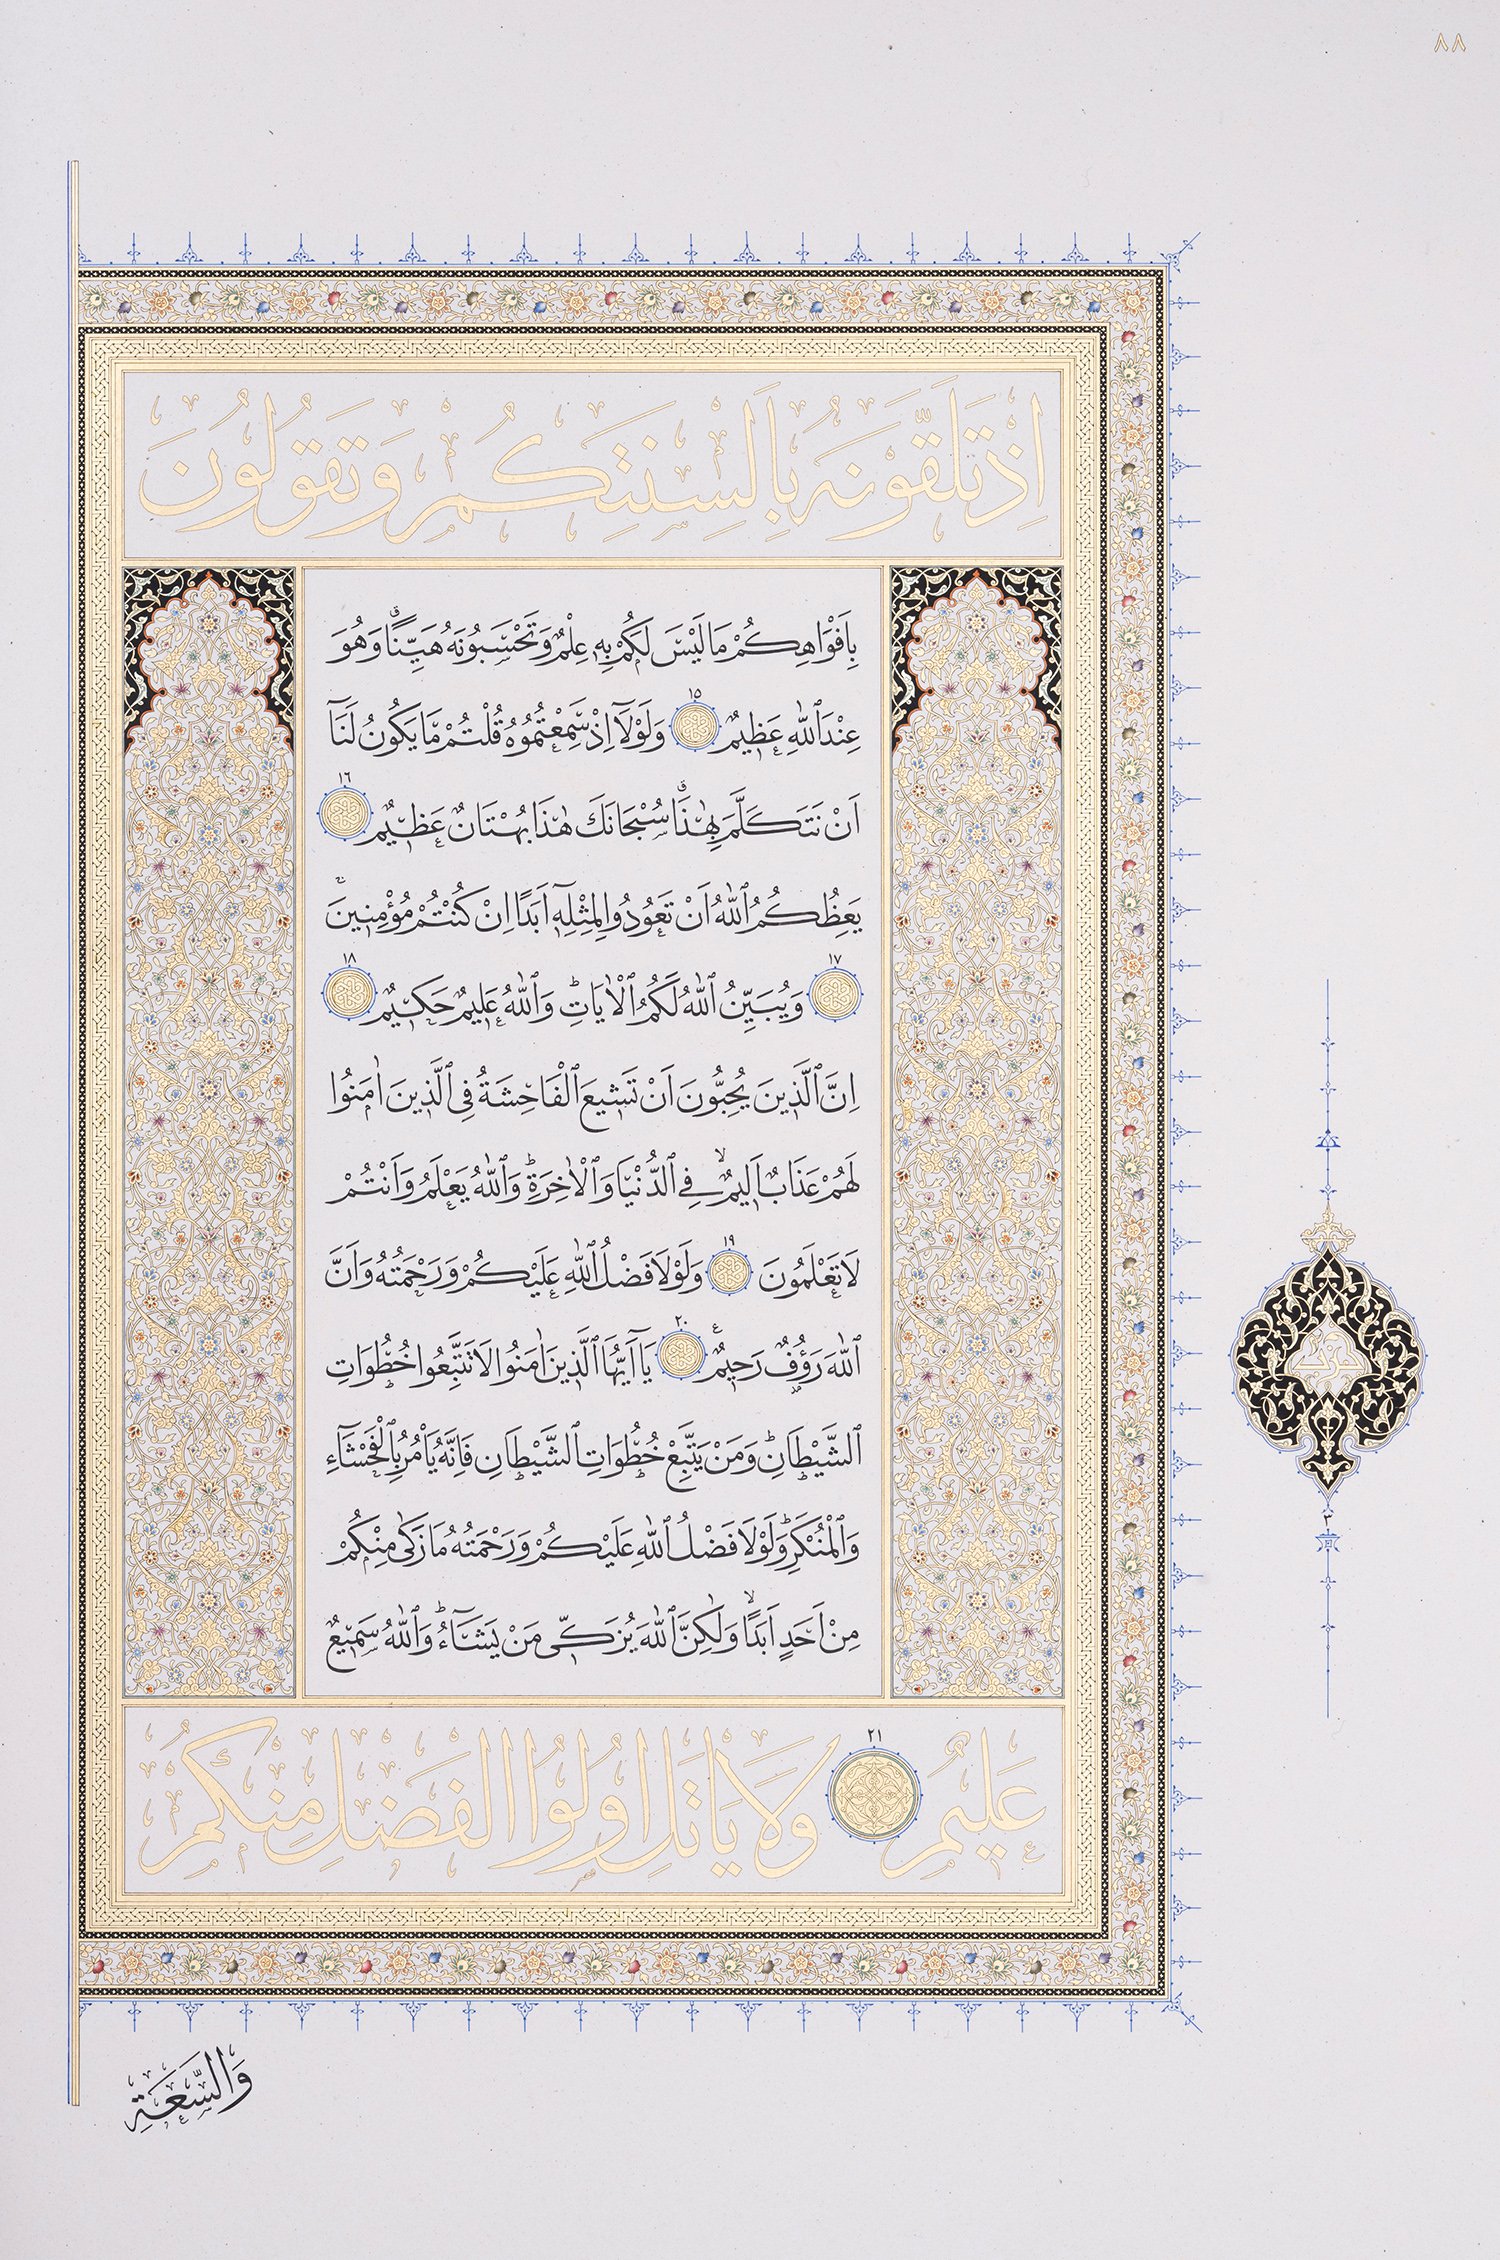 ٨٨
اِذْ تَلَقَّوْنَهُ بِاَلْسِنَتِكُمْ وَتَقُولُونَ
بِاَفْوَاهِكُمْ مَا لَيْسَ لَكُمْ بِهٖ عِلْمٌ وَتَحْسَبُونَهُ هَيِّنًاۗ وَهُوَ
عِنْدَ ٱللّٰهِ عَظٖيمٌ ١٥ وَلَوْلَٓا اِذْ سَمِعْتُمُوهُ قُلْتُمْ مَا يَكُونُ لَنَٓا
اَنْ نَتَكَلَّمَ بِهٰذَاۗ سُبْحَانَكَ هٰذَا بُهْتَانٌ عَظٖيمٌ ١٦
يَعِظُكُمُ ٱللّٰهُ اَنْ تَعُودُوا لِمِثْلِهٖٓ اَبَدًا اِنْ كُنْتُمْ مُؤْمِنٖينَ
١٧ وَيُبَيِّنُ ٱللّٰهُ لَكُمُ ٱلْاٰيَاتِۜ وَٱللّٰهُ عَلٖيمٌ حَكٖيمٌ ١٨
اِنَّ ٱلَّذٖينَ يُحِبُّونَ اَنْ تَشٖيعَ ٱلْفَاحِشَةُ فِي ٱلَّذٖينَ اٰمَنُوا
لَهُمْ عَذَابٌ اَلٖيمٌۙ فِي ٱلدُّنْيَا وَٱلْاٰخِرَةِۜ وَٱللّٰهُ يَعْلَمُ وَاَنْتُمْ
لَا تَعْلَمُونَ ١٩ وَلَوْلَا فَضْلُ ٱللّٰهِ عَلَيْكُمْ وَرَحْمَتُهُ وَاَنَّ
ٱللّٰهَ رَؤُفٌ رَحٖيمٌ ع ٢٠ يَٓا اَيُّهَا ٱلَّذٖينَ اٰمَنُوا لَا تَتَّبِعُوا خُطُوَاتِ
ٱلشَّيْطَانِۜ وَمَنْ يَتَّبِعْ خُطُوَاتِ ٱلشَّيْطَانِ فَاِنَّهُ يَاْمُرُ بِٱلْفَحْشَٓاءِ
وَٱلْمُنْكَرِۜ وَلَوْلَا فَضْلُ ٱللّٰهِ عَلَيْكُمْ وَرَحْمَتُهُ مَا زَكٰى مِنْكُمْ
مِنْ اَحَدٍ اَبَدًاۙ وَلٰكِنَّ ٱللّٰهَ يُزَكّٖي مَنْ يَشَٓاءُۜ وَٱللّٰهُ سَمٖيعٌ
عَلٖيمٌ ٢١ وَلَا يَاْتَلِ اُو۬لُوا الْفَضْلِ مِنْكُمْ
وَالسَّعَةِ
حزب
٣